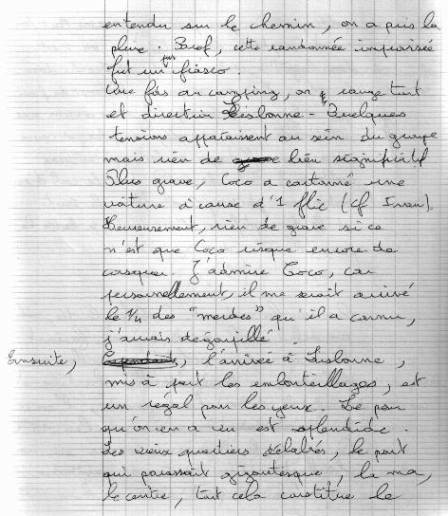 entendu sur le chemin, on a pris la
pluie. Bref, cette randonnée improvisée
fut un pur fiasco.
Une fois au camping, on range tout
et direction Lisbonne - Quelques
tensions apparaissent au sein du groupe
mais rien de bien significatif
Plus grave, Coco a cartonné une
voiture à cause d'1 flic (cf Insu).
Heureusement, rien de grave si ce
n'est que Coco risque encore de
casquer. J'admire Coco, car
personnellement, il me serait arrivé
le 1/4 des "merdes" qu'il a connu,
j'aurais dégoupillé.
Ensuite, l'arrivée à Lisbonne,
mis à part les embouteillages, est
un régal pour les yeux. Le peu
qu'on en a vu est splendide.
Les vieux quartiers délabrés, le port
qui paraissait gigantesque, la mer,
le centre, tout cela constitue le